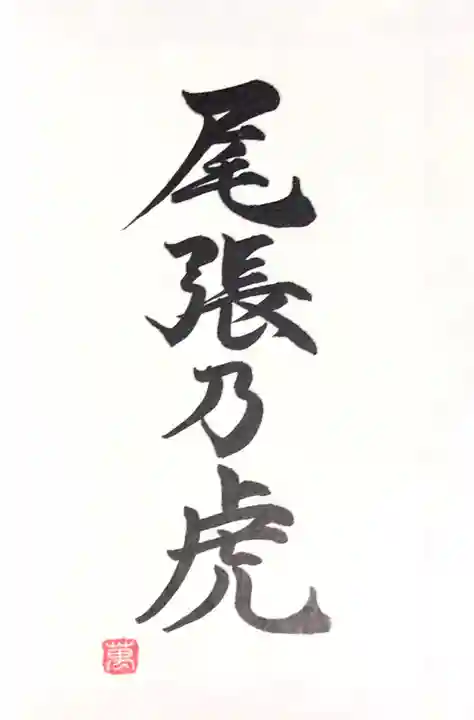 尾張乃虎
萬